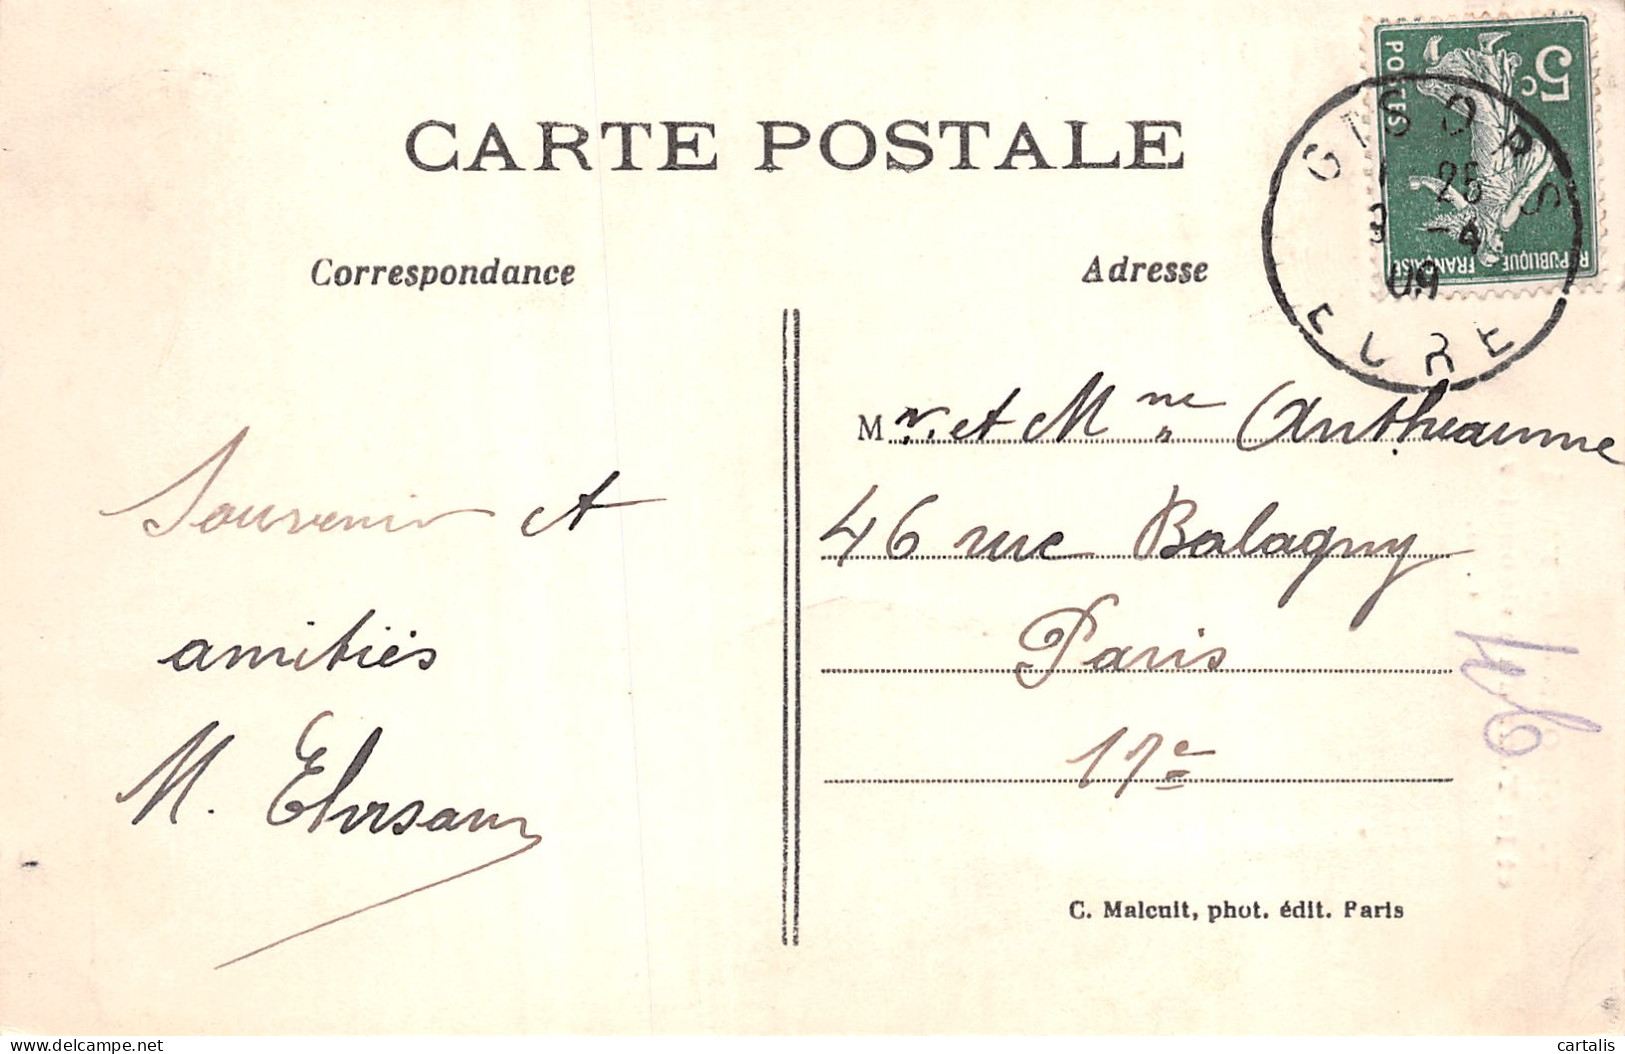 CARTE POSTALE
Correspondance
Adresse
5c
POSTES
REPUBLIQUE FRANÇAISE
GISORS
25
3 -4
09
EURE
Mr. et Mme Antheaume
46 rue Balagny
Paris
17e
Souvenir et
amitiés
M.
46
C. Malcuit, phot. édit. Paris
cartalis
delcampe.net